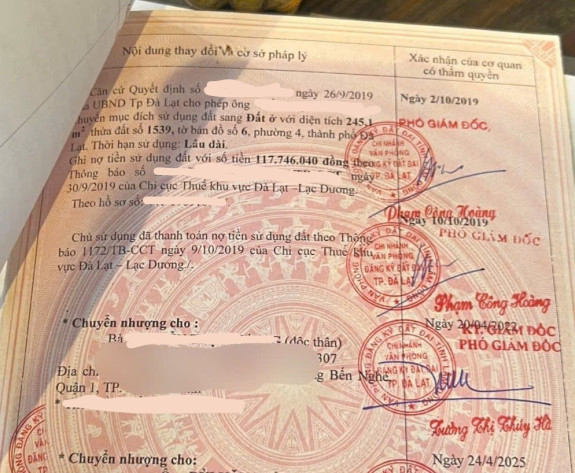 Nội dung thay đổi và cơ sở pháp lý
Xác nhận của cơ quan
có thẩm quyền
Căn cứ Quyết định số ngày 26/9/2019
UBND Tp Đà Lạt cho phép ông
chuyển mục đích sử dụng đất sang Đất ở với diện tích 245,1
m² thửa đất số 1539, tờ bản đồ số 6, phường 4, thành phố Đà
Lạt. Thời hạn sử dụng: Lâu dài.
Ghi nợ tiền sử dụng đất với số tiền 117.746.040 đồng theo
Thông báo số ngày
30/9/2019 của Chi cục Thuế khu vực Đà Lạt –Lạc Dương.
Theo hồ sơ số
Ngày 2/10/2019
PHÓ GIÁM ĐỐC
CHI NHÁNH
VĂN PHÒNG
ĐĂNG KÝ ĐẤT ĐAI
TP. ĐÀ LẠT
Phạm Công Hoàng
Chủ sử dụng đã thanh toán nợ tiền sử dụng đất theo Thông
báo 1172/TB-CCT ngày 9/10/2019 của Chi cục Thuế khu
vực Đà Lạt – Lạc Dương./.
Ngày 10/10/2019
PHÓ GIÁM ĐỐC
CHI NHÁNH
VĂN PHÒNG
ĐĂNG KÝ ĐẤT ĐAI
TP. ĐÀ LẠT
Phạm Công Hoàng
* Chuyển nhượng cho :
Bà (độc thân)
307
Địa ch. Bến Nghé,
Quận 1, TP.
Ngày 20/04/2022
KT. GIÁM ĐỐC
PHÓ GIÁM ĐỐC
CHI NHÁNH
VĂN PHÒNG
ĐĂNG KÝ ĐẤT ĐAI
TP. ĐÀ LẠT
Trương Thị Thúy Hà
* Chuyển nhượng cho:
24/4/2025